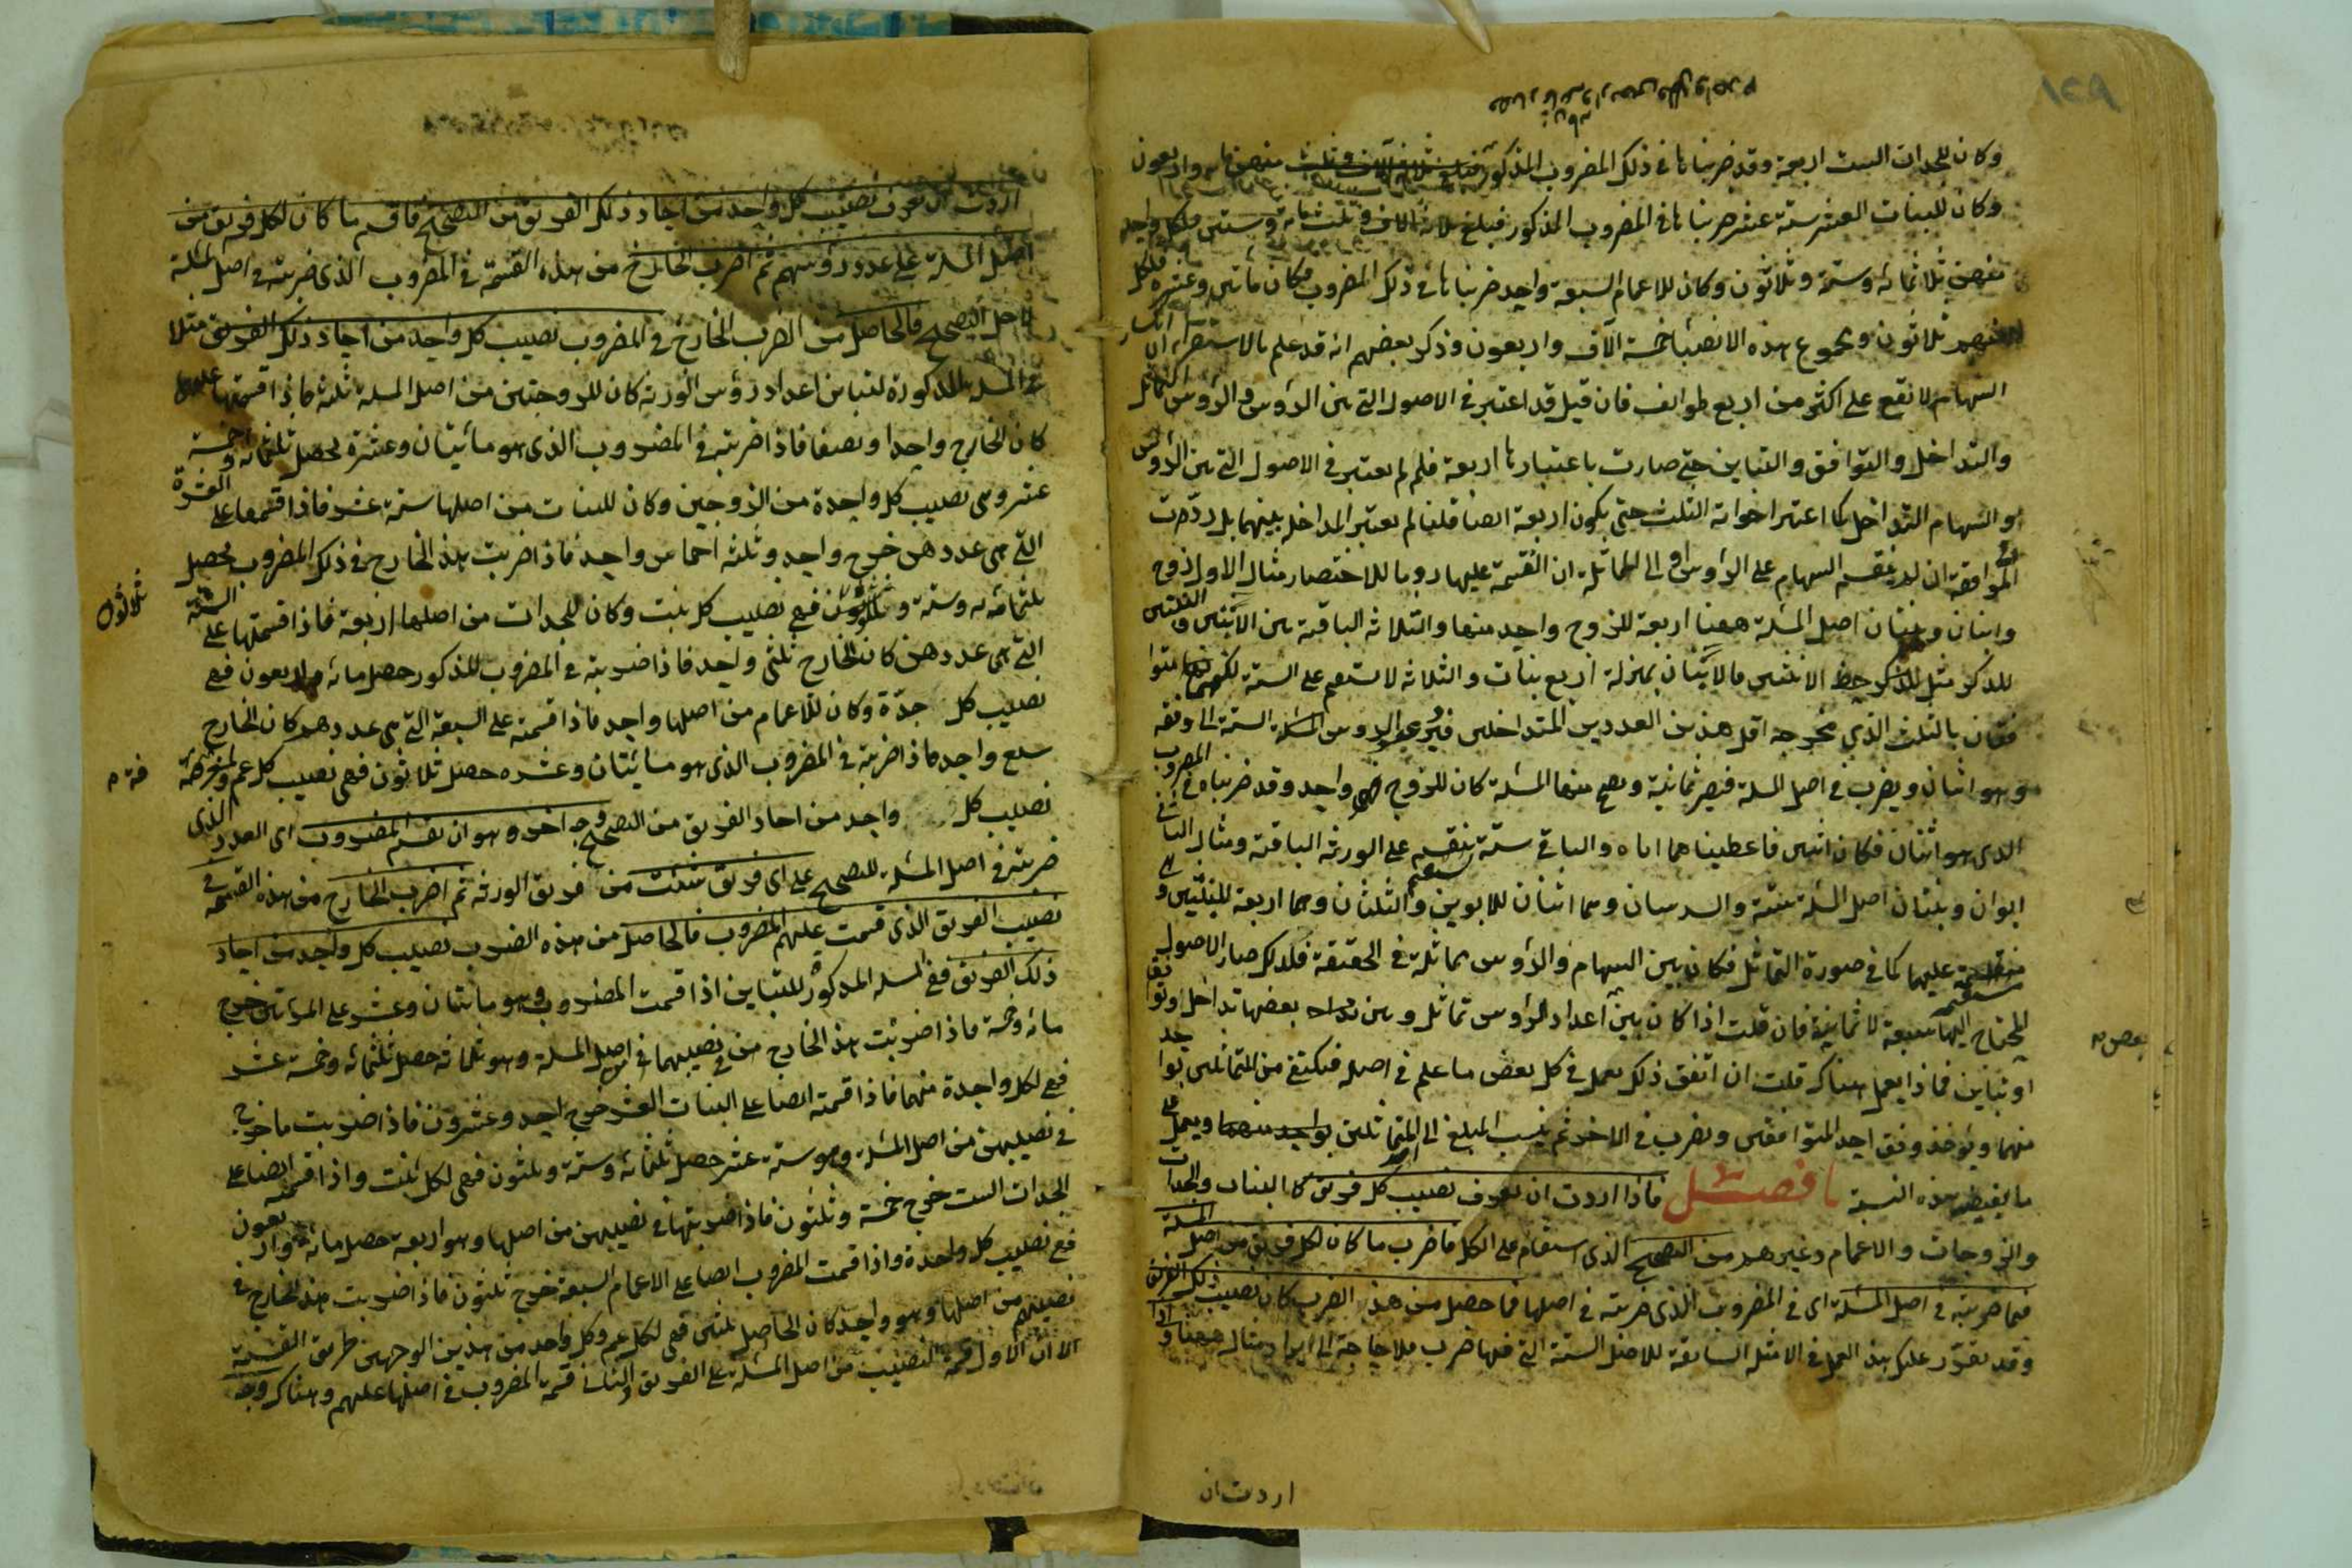 وكان للجدات الست اربعة وقد ضربناها في ذلك المضروب المذكور منهن مائة واربعون
وكان للبنات العشر ستة عشر ضربناها في المضروب المذكور فبلغ ثلاثة آلاف وثلثمائة وستين فلكل واحدة
منهن ثلاثمائة وستة وثلاثون وكان للاعمام السبعة واحد ضربناها في ذلك المضروب فكان مأتين وعشرة فلكل
منهم ثلاثون ومجموع هذه الانصباء خمسة آلاف واربعون وذكر بعضهم انه قد علم بالاستقراء ان انكسار
السهام لا تقع على اكثر من اربع طوائف فان قيل قد اعتبر في الاصول التي بين الرؤس والرؤس التماثل
والتداخل والتوافق والتباين حتى صارت باعتبارها اربعة فلم لم يعتبر في الاصول التي بين الرؤس
والسهام التداخل كما اعتبر اخواته الثلث حتى يكون اربعة ايضا قلنا لم يعتبر المداخل بينهما بل ردت
الى الموافقة ان لم تنقسم السهام على الرؤس او الى المماثلة ان انقسمت عليها روما للاختصار مثال الاول زوج
وابنان وبنتان اصل المسئلة ههنا اربعة للزوج واحد منها والثلاثة الباقية بين الابنين والبنتين
للذكر مثل حظ الانثيين فالابنان بمنزلة اربع بنات والثلاثة لا تستقيم على الستة لكنهما متوا
فقان بالثلث الذي مخرجه اقل هذين العددين المتداخلين فيرد عدد الرؤس الستة الى وفقه
وهو اثنان ويضرب في اصل المسئلة فيصر ثمانية ويصح منها المسئلة كان للزوج واحد وقد ضربناه في المضروب
الذي هو اثنان فكان اثنين فاعطيناهما اياه والباقي ستة ينقسم على الورثة الباقية ومثال الثاني
ابوان وبنتان اصل المسئلة ستة والسدسان وهما اثنان للابوين والثلثان وهما اربعة للبنتين
منقسمة عليهما كما في صورة التماثل فكان بين السهام والرؤس مماثلة في الحقيقة فلذلك صار الاصول
المحتاج اليها سبعة لا ثمانية فان قلت اذا كان بين اعداد الرؤس تماثل وبين بعضها تداخل او توافق
او تباين فماذا يعمل هناك قلت ان اتفق ذلك يعمل في كل بعض ما علم في اصله فيكتفى من المتماثلين بواحد
منهما ويؤخذ وفق احد المتوافقين ويضرب في الاخر ثم ينسب المبلغ الى المتماثلين ويعمل على
ما يقتضيه هذه النسبة فصل فاذا اردت ان تعرف نصيب كل فريق كالبنات والجدات
والزوجات والاعمام وغيرهم من التصحيح الذي استقام على الكل فاضرب ما كان لكل فريق من اصل المسئلة
فيما ضربته في اصل المسئلة اي في المضروب الذي ضربته في اصلها فما حصل من هذا الضرب كان نصيب ذلك الفريق
وقد تقرر عليك هذا العمل في الامثلة السابقة للاصل الستة التي فيها ضرب فلا حاجة الى ايراد مثال ههنا واذا
اردت ان
اردت ان تعرف نصيب كل واحد من احاد ذلك الفريق من التصحيح فاقسم ما كان لكل فريق من
اصل المسئلة على عدد رؤسهم ثم اضرب الخارج من هذه القسمة في المضروب الذي ضربته في اصل المسئلة
لاجل التصحيح فالحاصل من الضرب الخارج في المضروب نصيب كل واحد من احاد ذلك الفريق مثلا
في المسئلة المذكورة لتباين اعداد رؤس الورثة كان للزوجتين من اصل المسئلة ثلثة فاذا قسمتها عليهما
كان الخارج واحدا ونصفا فاذا ضربته في المضروب الذي هو مائيتان وعشرة يحصل ثلثمائة وخمسة
عشر وهي نصيب كل واحدة من الزوجين وكان للبنات من اصلها ستة عشر فاذا قسمتها على العشرة
التي هي عددهن خرج واحد وثلثة اخماس واحد فاذا ضربت هذا الخارج في ذلك المضروب يحصل
ثلثمائة وستة وثلثون فهي نصيب كل بنت وكان للجدات من اصلها اربعة فاذا قسمتها على الستة
ثلاثون
التي هي عددهن كان الخارج ثلثي واحد فاذا ضربته في المضروب المذكور حصل مائة واربعون فهي
نصيب كل جدة وكان للاعمام من اصلها واحد فاذا قسمته على السبعة التي هي عددهم كان الخارج
سبع واحد فاذا ضربته في المضروب الذي هو مائيتان وعشره حصل ثلاثون فهي نصيب كل عم ولمعرفة
نصيب كل واحد من احاد الفريق من التصحيح وجه اخر وهو ان تقسم المضروب اي العدد الذي
ضربته في اصل المسئلة للتصحيح على اي فريق شئت من فريق الورثة ثم اضرب الخارج من هذه القسمة في
نصيب الفريق الذي قسمت عليهم المضروب فالحاصل من هذه الضرب نصيب كل واحد من احاد
ذلك الفريق ففي المسئلة المذكور للتباين اذا قسمت المضروب وهو مائتان وعشر على المراتين خرج
مائة وخمسة فاذا ضربت هذا الخارج في نصيبهما من اصل المسئلة وهو ثلثة حصل ثلثمائة وخمسة عشر
فهي لكل واحدة منهما فاذا قسمته ايضا على البنات العشر خرج احد وعشرون فاذا ضربت ما خرج
في نصيبهن من اصل المسئلة وهو ستة عشر حصل ثلثمائة وستة وثلثون فهي لكل بنت واذا قسمته ايضا على
الجدات الست خرج خمسة وثلثون فاذا ضربتها في نصيبهن من اصلها وهو اربعة حصل مائة واربعون
فهي نصيب كل واحدة واذا قسمت المضروب ايضا على الاعمام السبعة خرج ثلثون فاذا ضربت هذا الخارج في
نصيبهم من اصلها وهو واحد كان الحاصل ثلثين فهي لكل عم وكل واحد من هذين الوجهين طريق القسمة
الا ان الاول قسمة النصيب من اصل المسئلة على الفريق والثاني قسمة المضروب في اصلها عليهم وهناك وجه